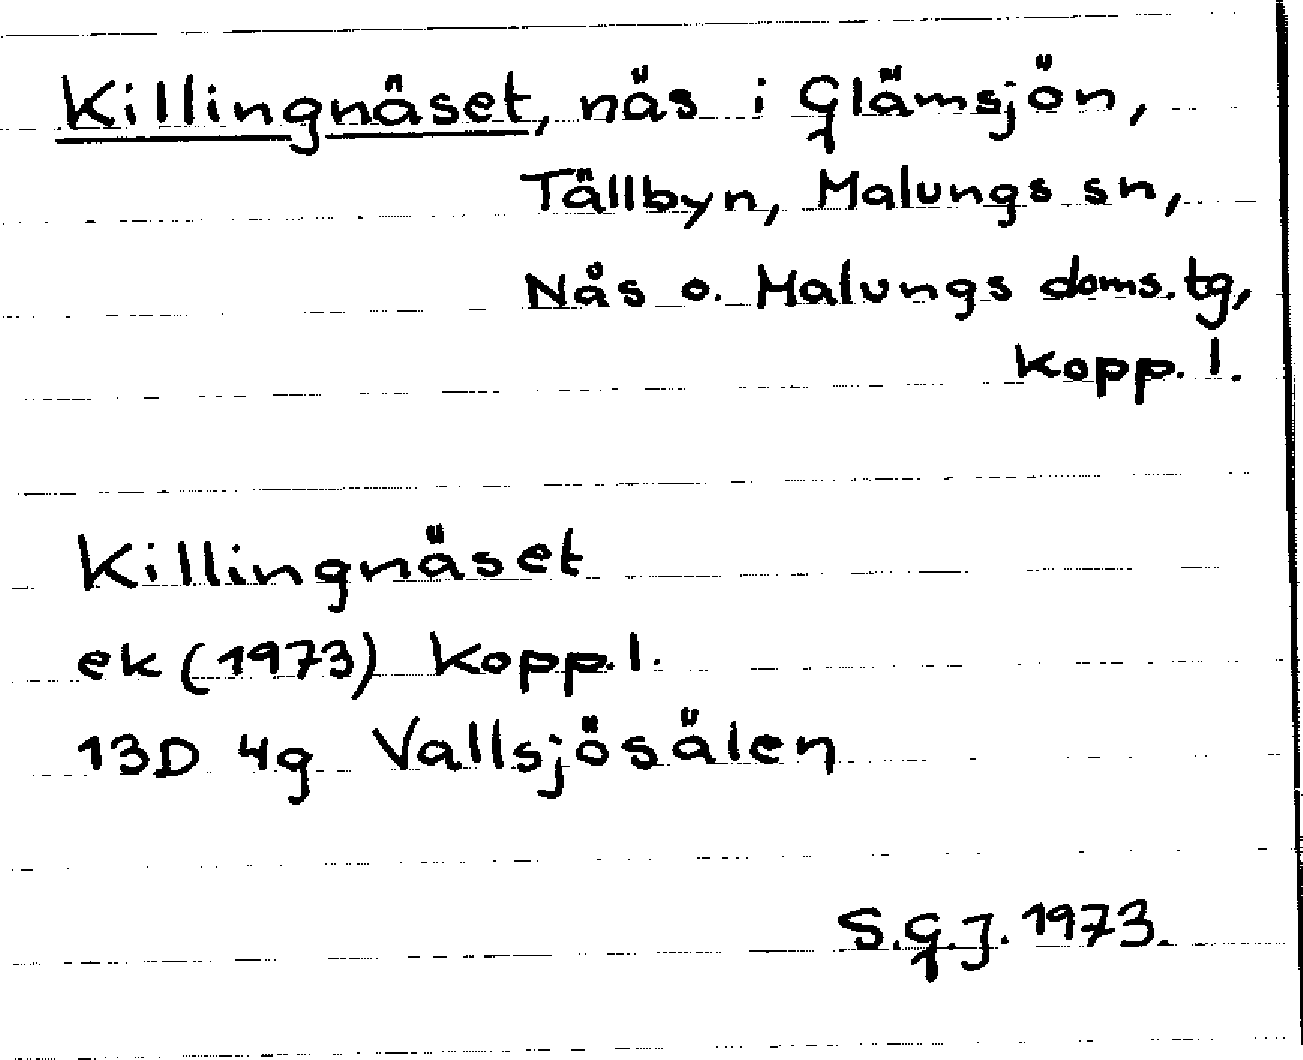 Killingnäset, näs i Glämsjön,
Tällbyn, Malungs sn,
Nås o. Malungs doms.tg,
Kopp. l.
Killingnäset
ek (1973) Kopp. l.
13D 4g Vallsjösälen
S.G.J. 1973.